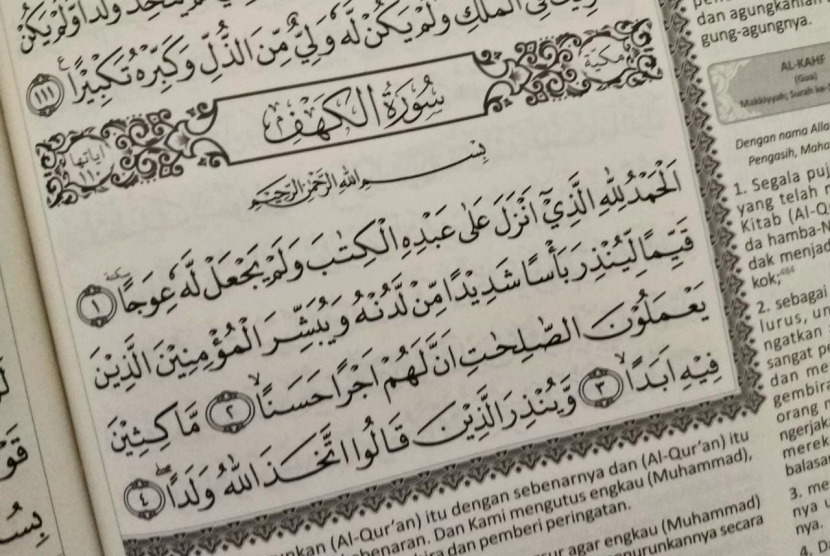 وَلَمْ يَكُنْ لَّهٗ وَلِيٌّ مِّنَ الذُّلِّ وَكَبِّرْهُ تَكْبِيْرًا ࣖ ١١١
مكية
سُوْرَةُ الْكَهْفِ
اياتها ١١٠
بِسْمِ اللّٰهِ الرَّحْمٰنِ الرَّحِيْمِ
اَلْحَمْدُ لِلّٰهِ الَّذِيْٓ اَنْزَلَ عَلٰى عَبْدِهِ الْكِتٰبَ وَلَمْ يَجْعَلْ لَّهٗ عِوَجًا سكتة ١
قَيِّمًا لِّيُنْذِرَ بَأْسًا شَدِيْدًا مِّنْ لَّدُنْهُ وَيُبَشِّرَ الْمُؤْمِنِيْنَ الَّذِيْنَ
يَعْمَلُوْنَ الصّٰلِحٰتِ اَنَّ لَهُمْ اَجْرًا حَسَنًاۙ ٢ مَّاكِثِيْنَ
فِيْهِ اَبَدًاۙ ٣ وَّيُنْذِرَ الَّذِيْنَ قَالُوا اتَّخَذَ اللّٰهُ وَلَدًاۖ ٤
dan agungkanlah
gung-agungnya.
AL-KAHF
(Gua)
Makkiyyah; Surah ke-
Dengan nama Alla
Pengasih, Maha
1. Segala puj
yang telah
Kitab (Al-Q
da hamba-N
dak menjad
kok;
2. sebagai
lurus, un
ngatkan
sangat pe
dan me
gembira
orang
ngerjak
merek
balasa
3. me
nya
nya.
4. D
(Al-Qur'an) itu dengan sebenarnya dan (Al-Qur'an) itu
Dan Kami mengutus engkau (Muhammad),
dan pemberi peringatan.
agar engkau (Muhammad)
secara